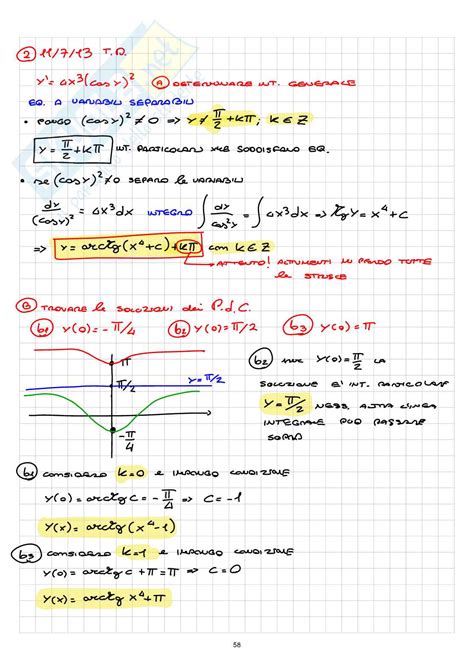 2 11/7/13 T.A.
y' = 4x³(cos y)² A DETERMINARE INT. GENERALE
EQ. A VARIABILI SEPARABILI
• PONGO (cos y)² ≠ 0 ⇒ y ≠ π/2 + kπ ; k ∈ Z
y = π/2 + kπ INT. PARTICOLARI SODDISFANO EQ.
• SE (cos y)² ≠ 0 SEPARO le VARIABILI
dy/(cos y)² = 4x³dx INTEGRO ∫ dy/cos²y = ∫ 4x³dx ⇒ tg y = x⁴ + c
⇒ y = arctg(x⁴+c) + kπ con k ∈ Z
ATTENTO! ALTRIMENTI MI PERDO TUTTE
le STRISCE
B TROVARE le SOLUZIONI dei P.d.C.
b1 y(0) = -π/4 b2 y(0) = π/2 b3 y(0) = π
π
π/2 y = π/2
-π/4
b2 y(0) = π/2 LA
SOLUZIONE E' INT. PARTICOLARE
y = π/2 NESS. ALTRA LINEA
INTEGRALE PUÒ PASSARE
SOPRA
b1 CONSIDERO k=0 E IMPONGO CONDIZIONE
y(0) = arctg c = -π/4 ⇒ c = -1
y(x) = arctg(x⁴-1)
b3 CONSIDERO k=1 E IMPONGO CONDIZIONE
y(0) = arctg c + π = π ⇒ c = 0
y(x) = arctg x⁴ + π
58